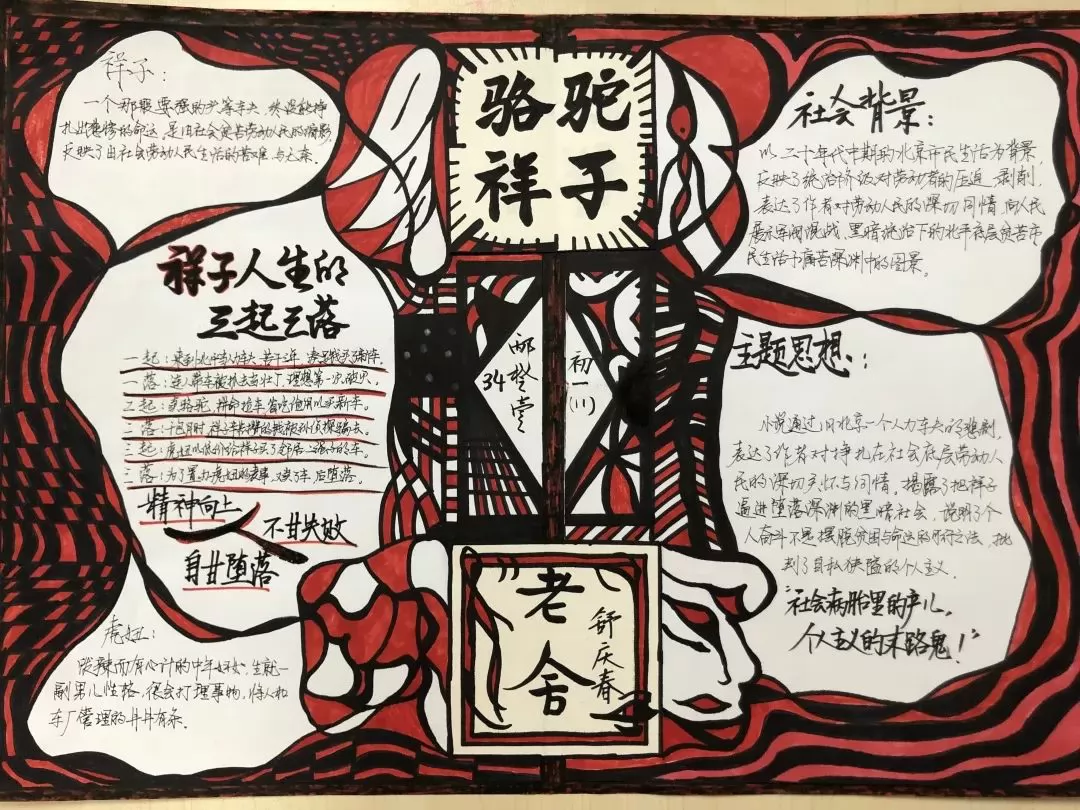 骆驼
祥子
祥子：
一个那要强的头等车夫，终没能挣
扎出悲惨的命运，是旧社会贫苦劳动人民的缩影，
反映了旧社会劳动人民生活的苦难与
祥子人生的
三起三落
一起：来到北平当人力车夫，苦干三年，凑足钱买辆新车。
一落：连人带车被抓去当壮丁，理想第一次破灭。
二起：卖骆驼，拼命拉车，省吃俭用以买新车。
二落：祥子辛苦攒的钱被孙侦探骗去。
三起：虎妞以低价给祥子买了邻居二强子的车。
三落：为了置办虎妞的丧事，又卖了车，后堕落。
精神向上
不甘失败
自甘堕落
虎妞：
泼辣而有心计的中年妇女，生就一
副男儿性格，很会打理事物，将人和
车厂管理的井井有条。
34
初一
(11)
老舍
舒庆春
社会背景：
以二十年代中期的北京市民生活为背景，
反映了统治阶级对劳动者的压迫、剥削，
表达了作者对劳动人民的深切同情，向人民
展示军阀混战、黑暗统治下的北平底层贫苦市
民生活于痛苦深渊中的图景。
主题思想：
小说通过旧北京一个人力车夫的悲剧，
表达了作者对挣扎在社会底层劳动人
民的深切关怀与同情。揭露了把祥子
逼进堕落深渊的黑暗社会，说明了个
人奋斗不是摆脱贫困与命运的可行之法，批
判了自私狭隘的个人主义。
“社会病胎里的产儿，
个人主义的末路鬼！”